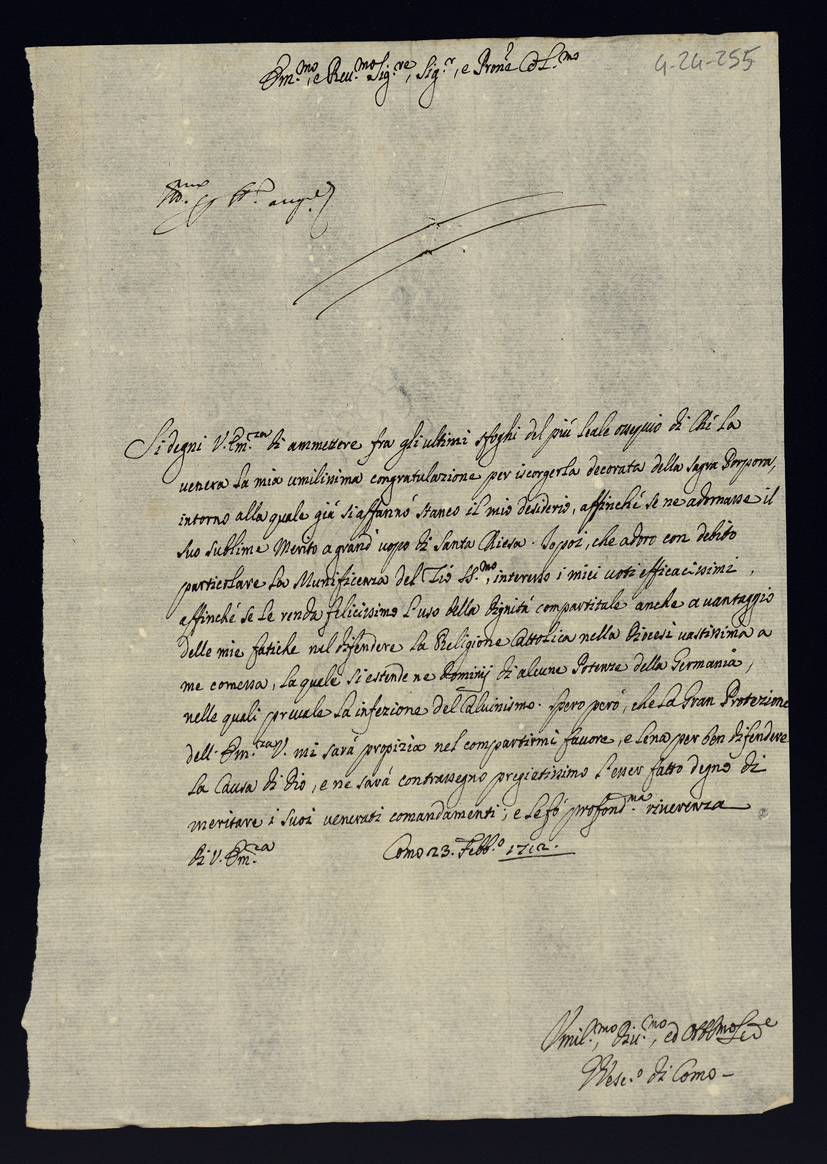 Em.mo, e Reu.mo Sig.re, Sig.r, e Prone Col.mo
4-24-255
Si degni V. Em.za di ammettere fra gli ultimi sfoghi del più leale ossequio di chi la
venera la mia umilissima congratulazione per iscorgerla decorata della sagra Porpora,
intorno alla quale già si affannò stanco il mio desiderio, affinché se ne adornasse il
suo sublime Merito a grand'uopo di Santa Chiesa. Io poi, che adoro con debito
particolare la Munificenza del Zio SS.mo, interesso i miei voti efficacissimi,
affinché se le renda felicissimo l'uso della dignità compartitale anche a vantaggio
delle mie fatiche nel difendere la Religione Cattolica nella diocesi vastissima a
me comessa, la quale si estende ne Dominij di alcune Potenze della Germania,
nelle quali preuale la infezione del Caluinismo. Spero però, che la Gran Protezione
dell. Em.za V. mi sarà propizia nel compartirmi fauore, e lena per ben difendere
la Causa di dio, e ne sarà contrassegno pregiatissimo l'esser fatto degno di
meritare i suoi venerati comandamenti; e le fò profond.ma riuerenza
Di V. Em.za Como 23. Febb.o 1712.
Vmil.mo, diu.mo, ed Obb.mo
Vesc.o di Como